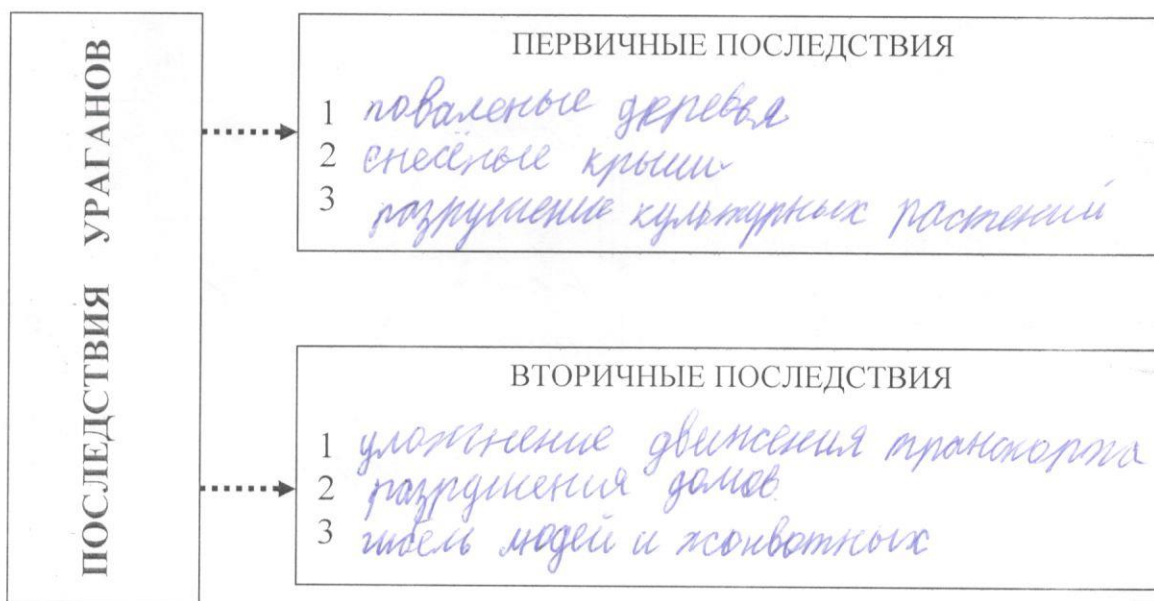 ПОСЛЕДСТВИЯ УРАГАНОВ
ПЕРВИЧНЫЕ ПОСЛЕДСТВИЯ
1 поваленые деревья
2 снесёные крыши
3 разрушение культурных растений
ВТОРИЧНЫЕ ПОСЛЕДСТВИЯ
1 уложнение движения транспорта
2 разрушения домов
3 гибель людей и жонвотных